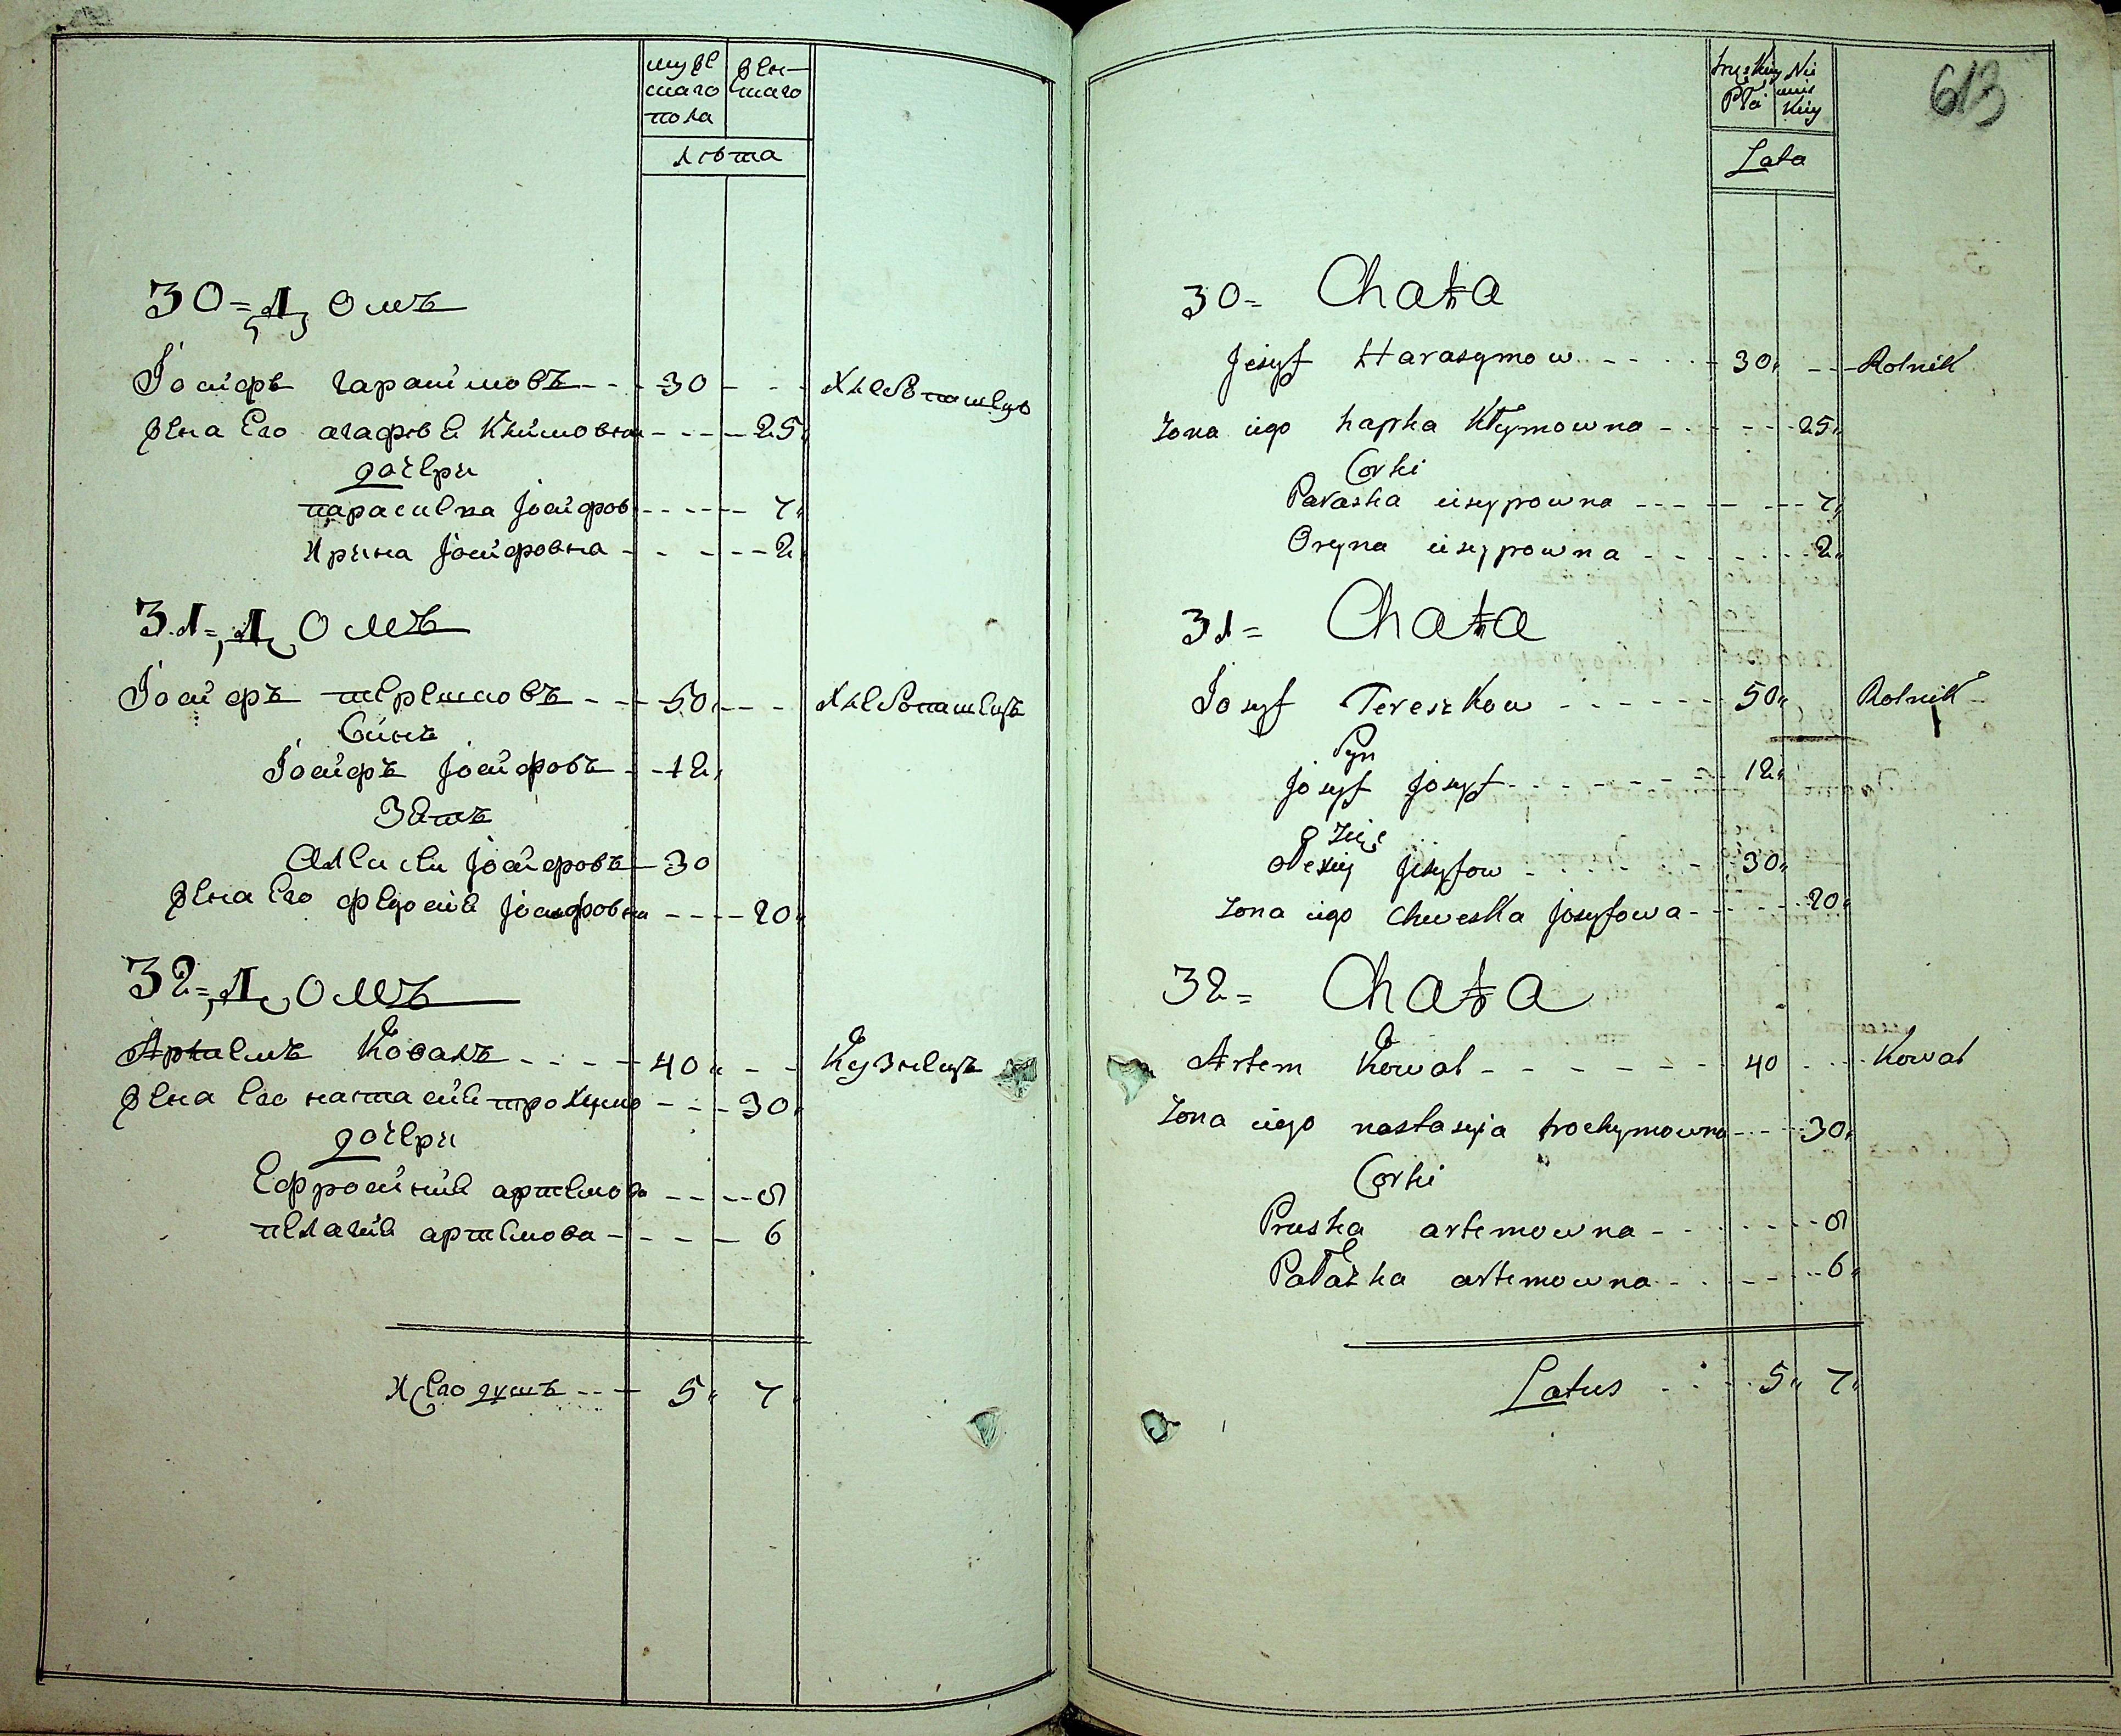 мужескаго пола
женскаго
лѣта
30 = Домъ
Іосифъ гарасимовъ - - - 30 - - - Хлебопашецъ
жена Его агафія Климовна - - - - 25
дочери
параскева Іосифов - - - - - 7
Ирина Іосифовна - - - - - 2
31 = Домъ
Іосифъ терешковъ - - - 50 - - - Хлебопашецъ
Синъ
Іосифъ Іосифовъ - - 12
Зять
Алексей Іосифовъ - 30
жена Его федосия Іосифовна - - - - 20
32 = Домъ
Артемъ Коваль - - - - 40 - - Кузнецъ
жена Его настасия трохимо - - - 30
дочери
Ефросиния артемова - - - - 8
пелагия артемова - - - - 6
Всего душъ - - - 5 7
613
Męskiey Płci
Niewieskiey
Lata
30 = Chata
Josyf Harasymow - - - 30 - - - Rolnik
Zona iego hapka Kłymowna - - - - 25
Corki
Paraska iisypowna - - - - - 7
Oryna iisypowna - - - - - 2
31 = Chata
Josyf Tereszkow - - - - - 50 Rolnik
Syn
Josyf Josyf - - - - - 12
Zięć
Olexiy Josyfow - - - - 30
Zona iego Chweska Josyfowa - - - - 20
32 = Chata
Artem Kowal - - - - - - - 40 - - - Kowal
Zona iego nastasyia trochymowna - - - 30
Corki
Pruska artemowna - - - - - 8
Pałażka artemowna - - - - - 6
Latus - - - 5 7